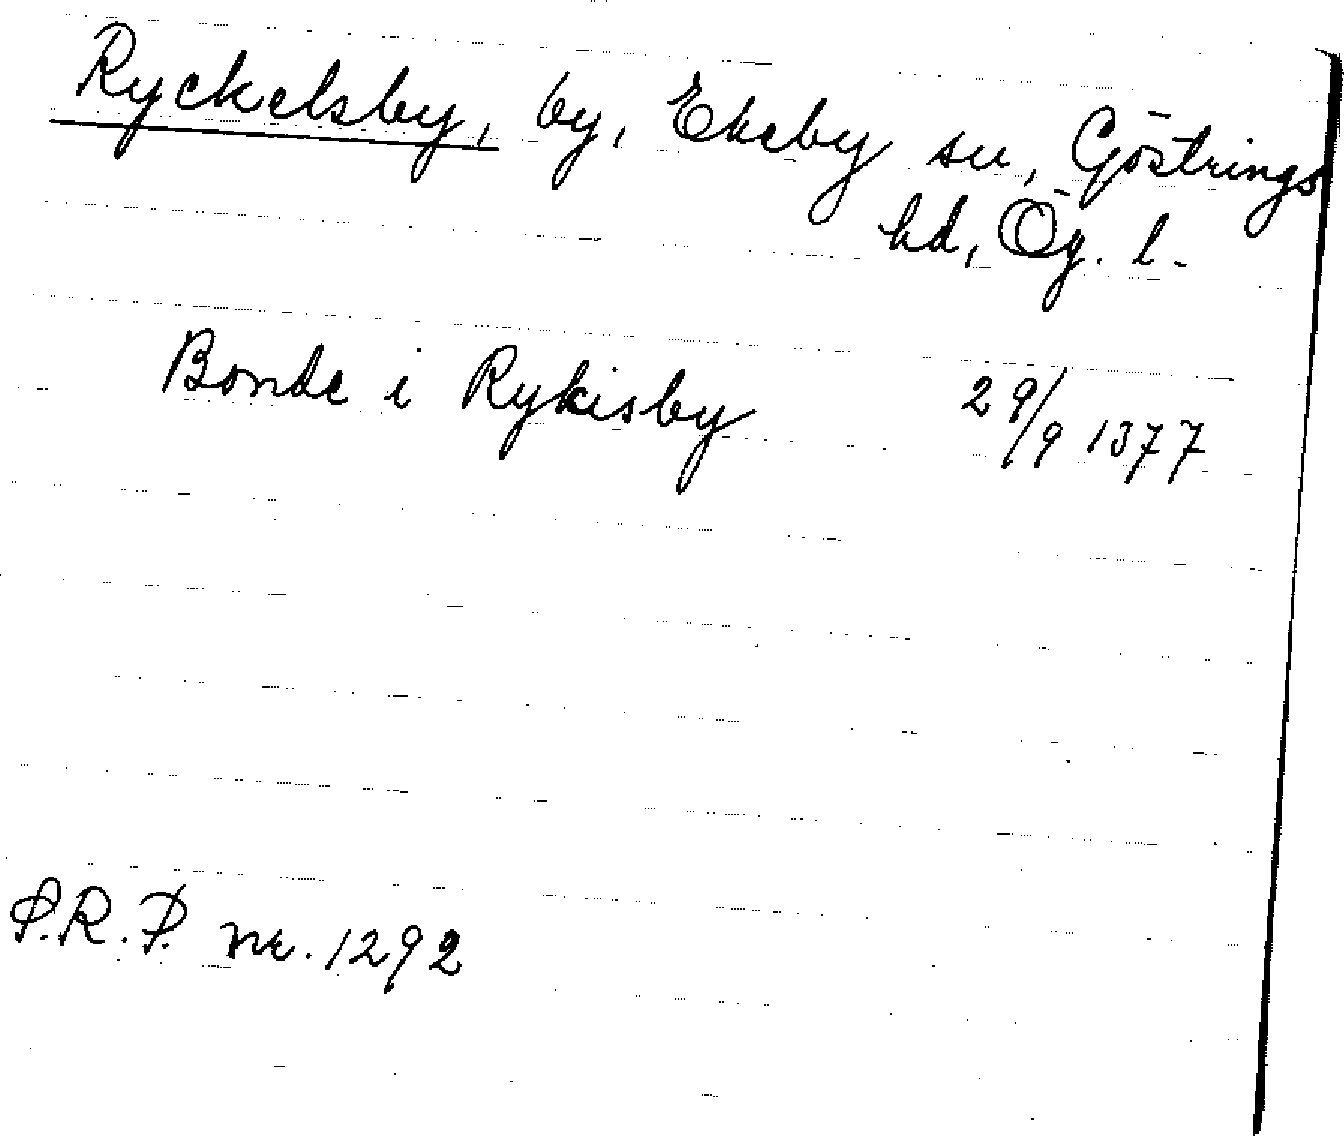 Ryckelsby, by, Ekeby sn, Göstrings
hd, Ög. l.
Bonde i Rykisby 29/9 1377
P.R.P. nr. 1292